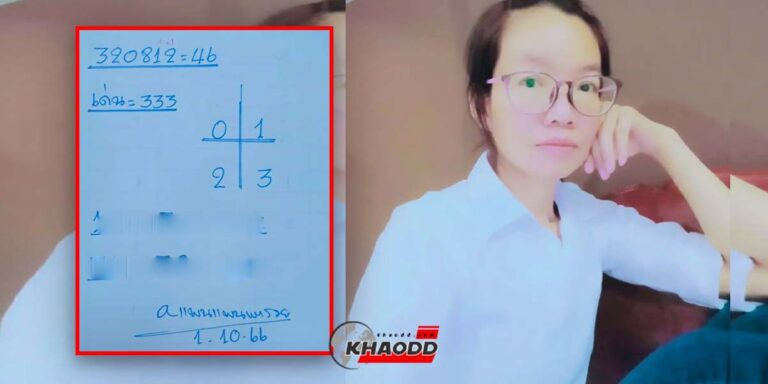 320812=46
เด่น=333
0 1
2 3
1.10.66
khaodd.com
KHAODD